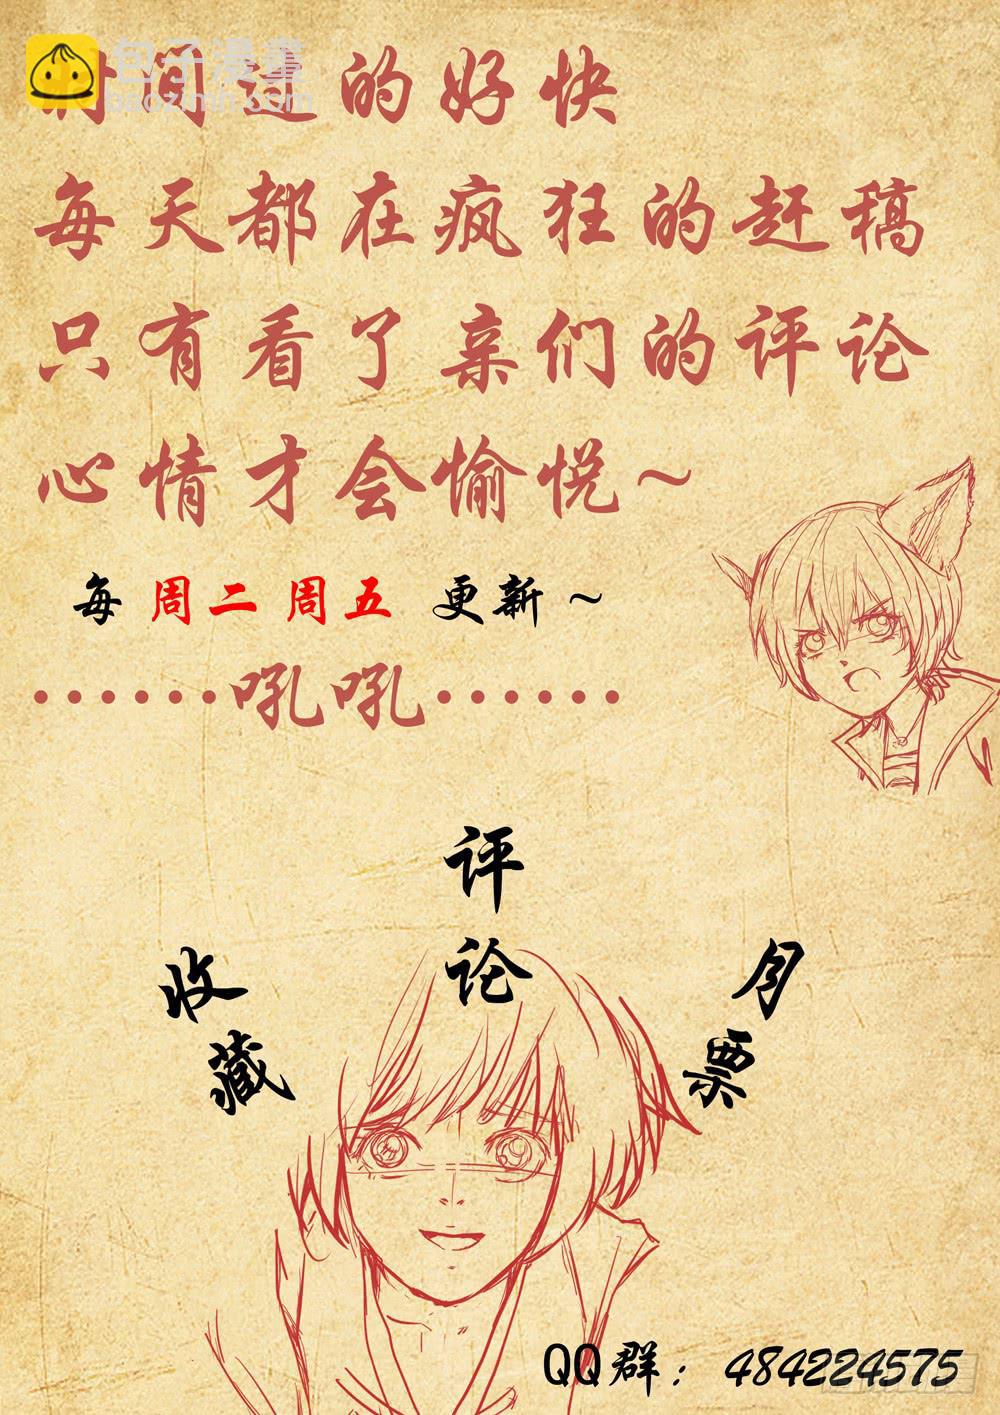 包子漫畫
baozimh.com
时间过的好快
每天都在疯狂的赶稿
只有看了亲们的评论
心情才会愉悦~
每 周二 周五 更新 ~
······吼吼······
评论
收藏
月票
QQ群：484224575